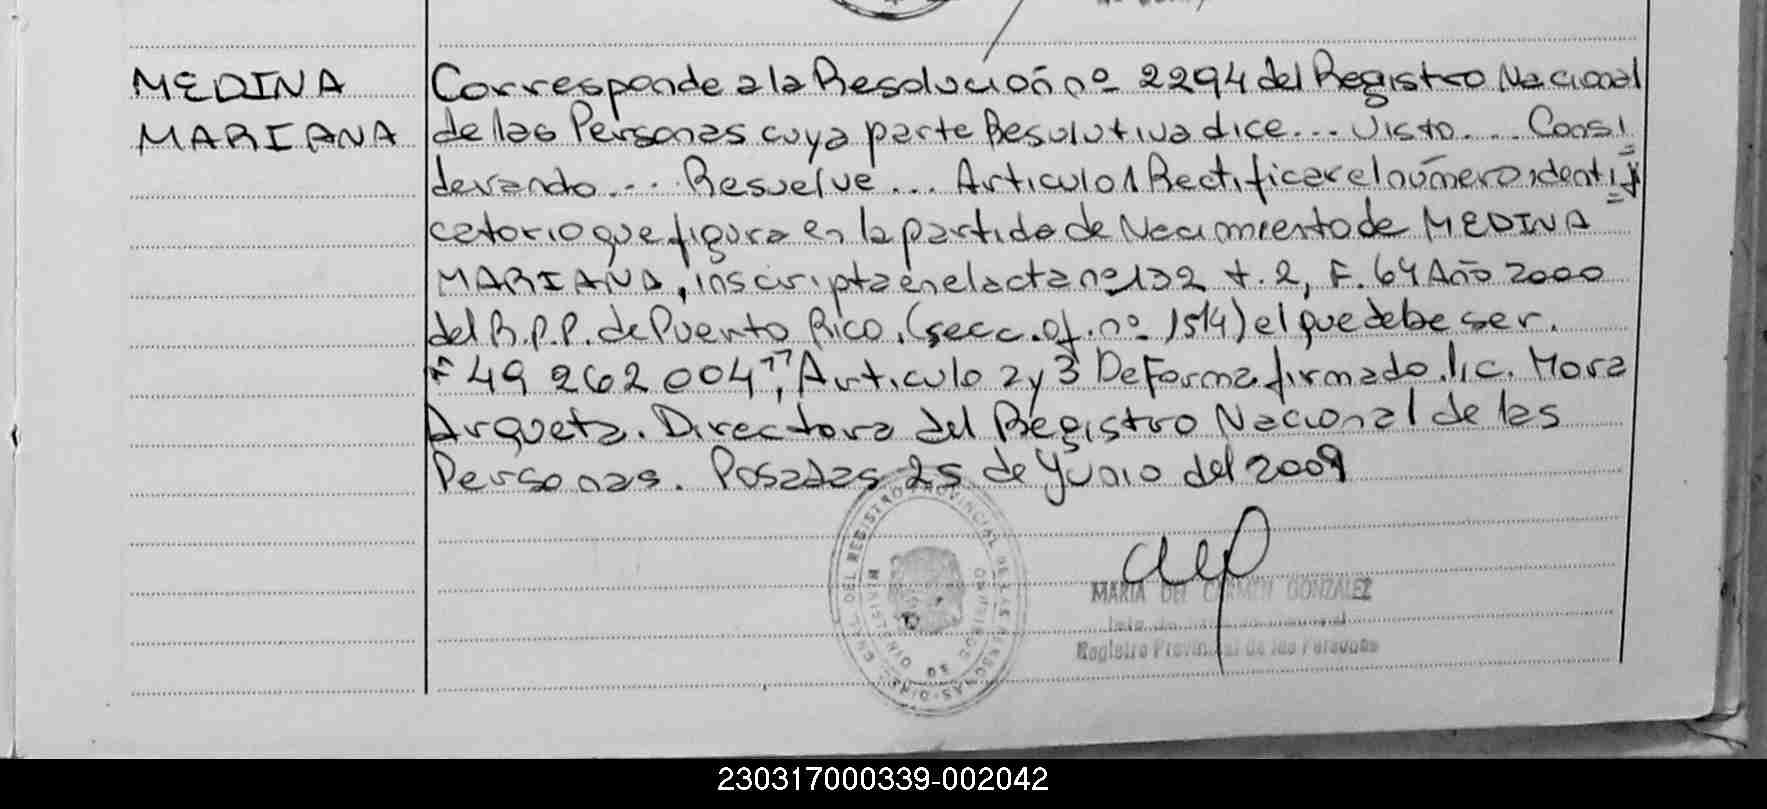 MEDINA
MARIANA
Corresponde a la Resolución nº 2294 del Registro Nacional
de las Personas cuya parte Resolutiva dice... Visto.... Consi
derando... Resuelve... Articulo 1 Rectificar el número identifi
catorio que figura en la partida de Nacimiento de MEDINA
MARIANA, inscripta en el acta nº 132 t. 2, F. 64 Año 2000
del R.P.P. de Puerto Rico. (secc. of. nº 1514) el que debe ser.
49 262 004", Articulo 2 y 3 De Forma firmado. lic. Mora
Argueta. Directora del Registro Nacional de las
Personas. Posadas 25 de Junio del 2009
MARIA DEL CARMEN GONZALEZ
Registro Provincial de las Personas
230317000339-002042